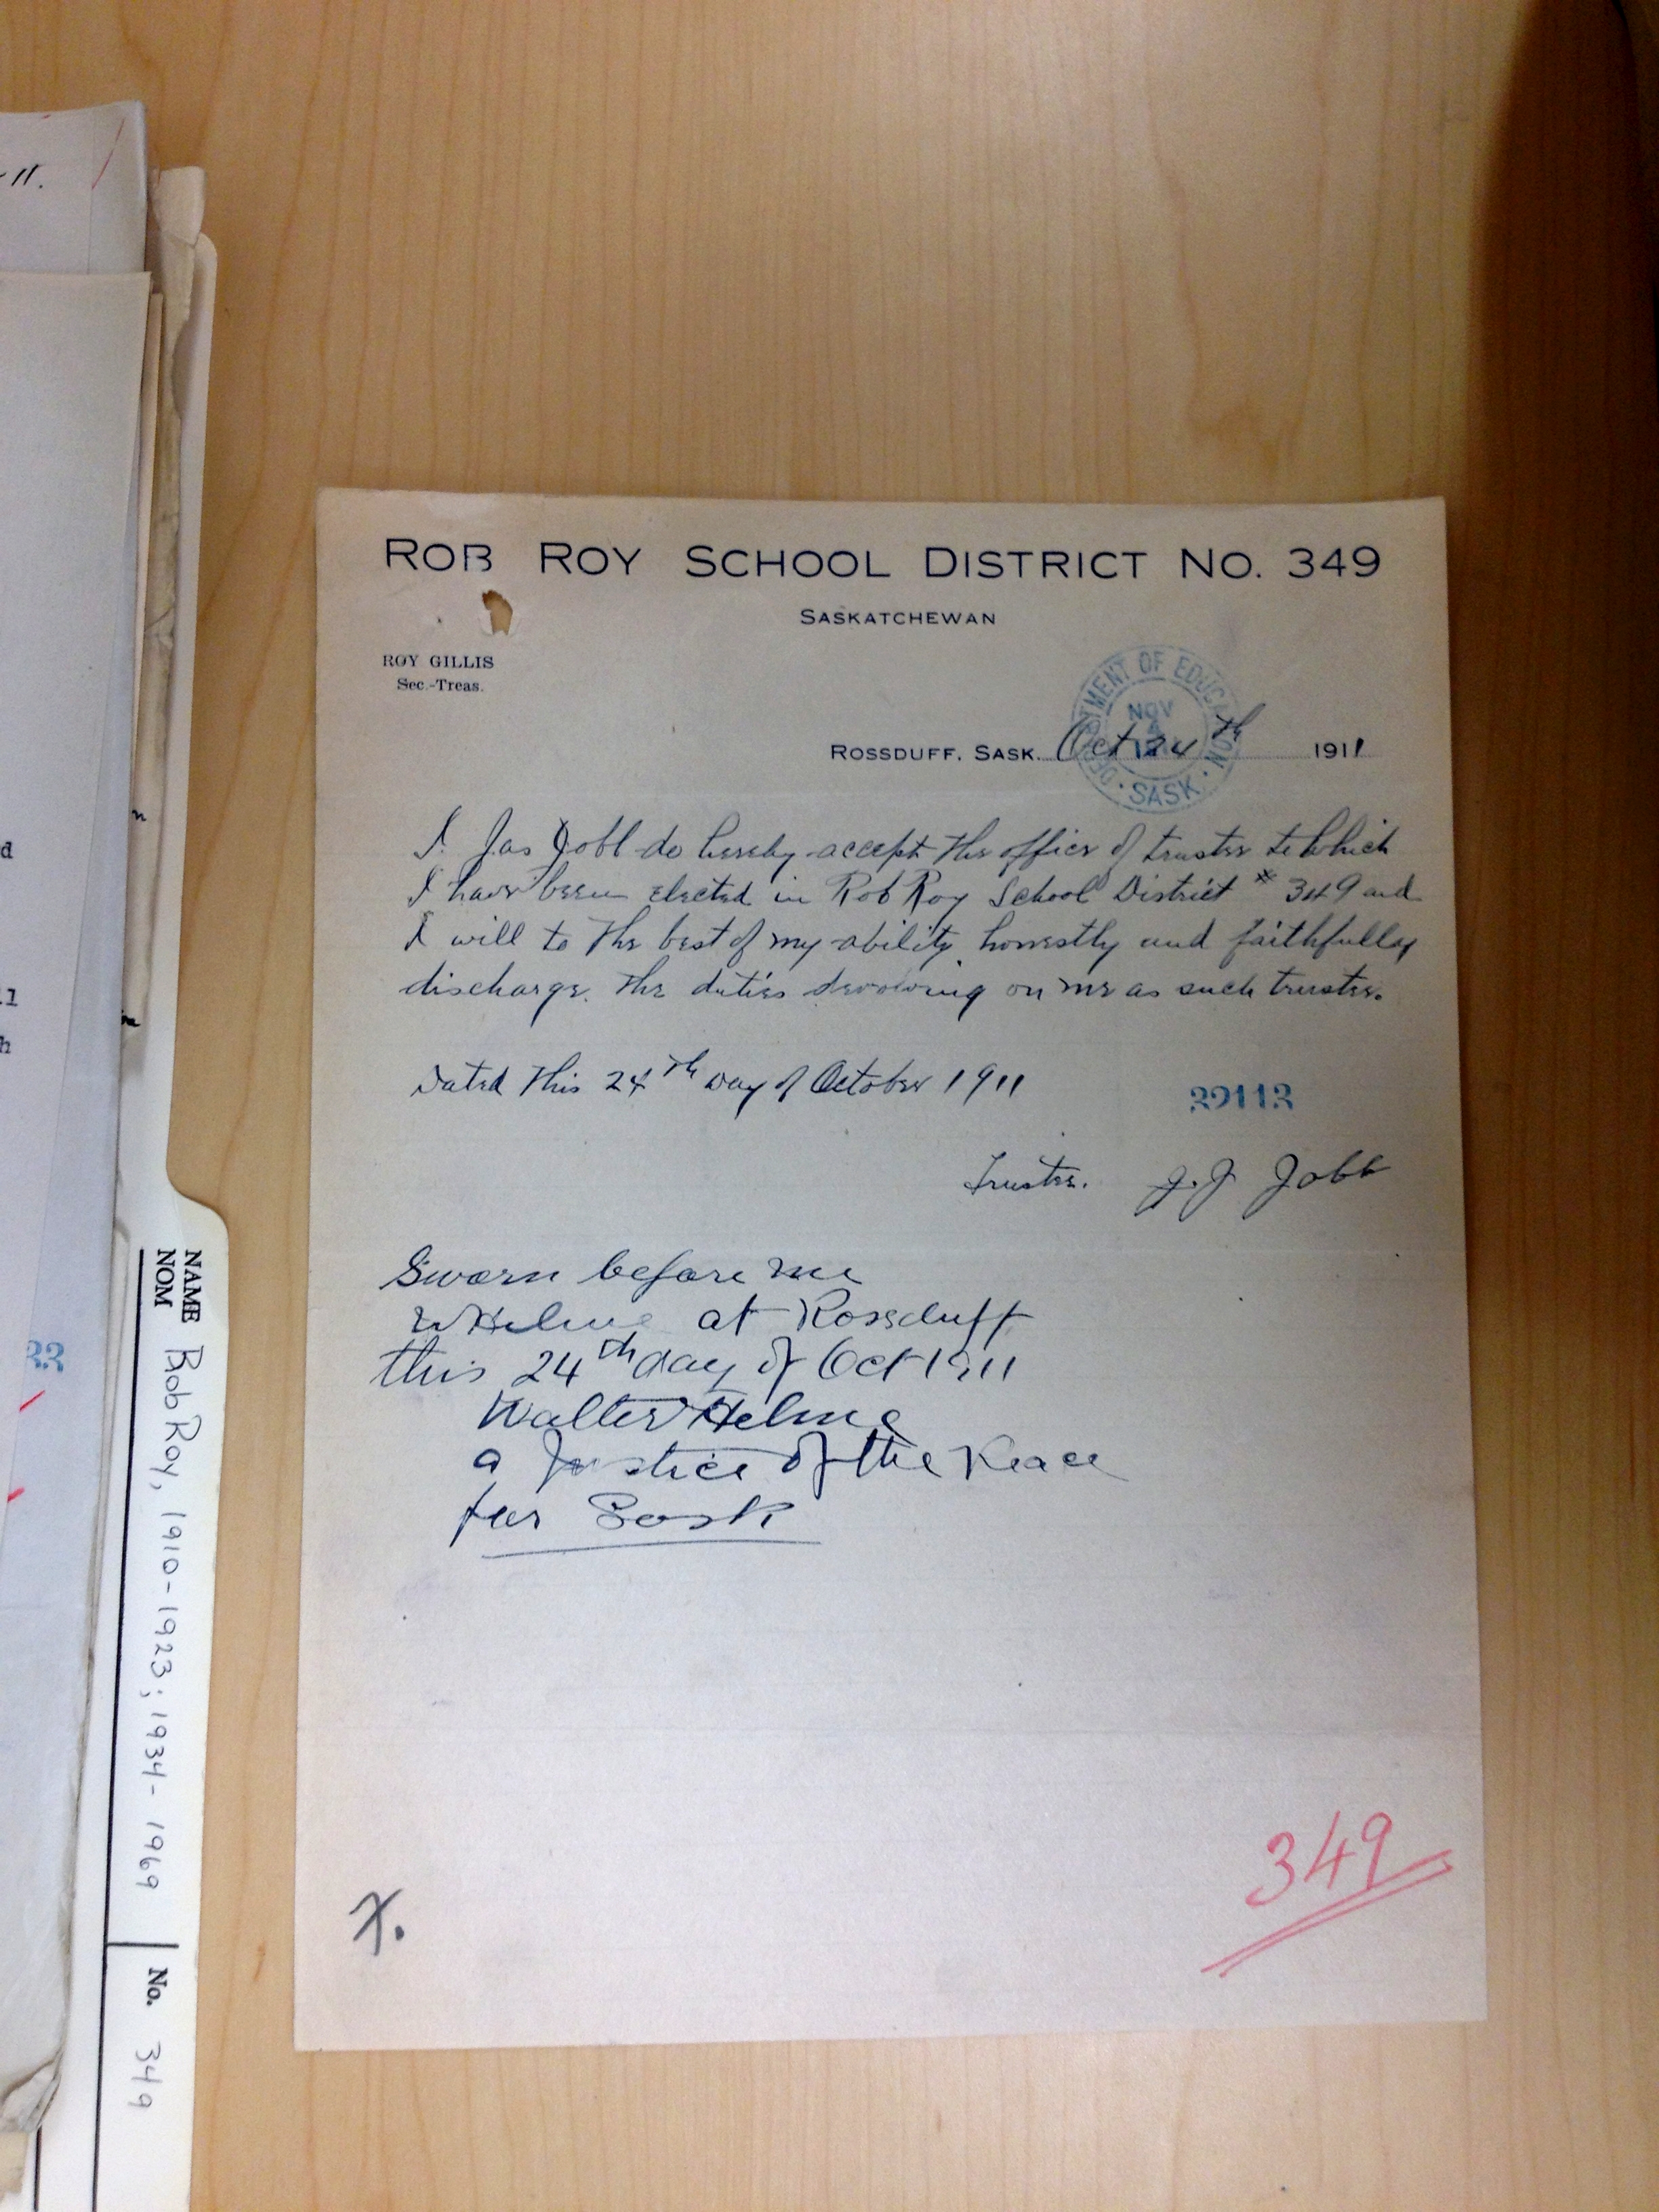 ROB ROY SCHOOL DISTRICT NO. 349
SASKATCHEWAN
ROY GILLIS
Sec.-Treas.
DEPARTMENT OF EDUCATION
NOV
SASK.
ROSSDUFF, SASK. Oct 24th 1911
I. Jas Jobb do hereby accept the office of trustee to which
I have been elected in Rob Roy School District # 349 and
I will to the best of my ability honestly and faithfully
discharge. the duties devolving on me as such trustee.
Dated this 24th day of October 1911
32113
Trustee. J. J Jobb
Sworn before me
W Helme at Rossduff
this 24th day of Oct 1911
Walter Helme
a Justice of the Peace
for Sask
349
NAME
NOM
Rob Roy, 1910-1923; 1934-1969
No. 349
11.
d
n
h
33